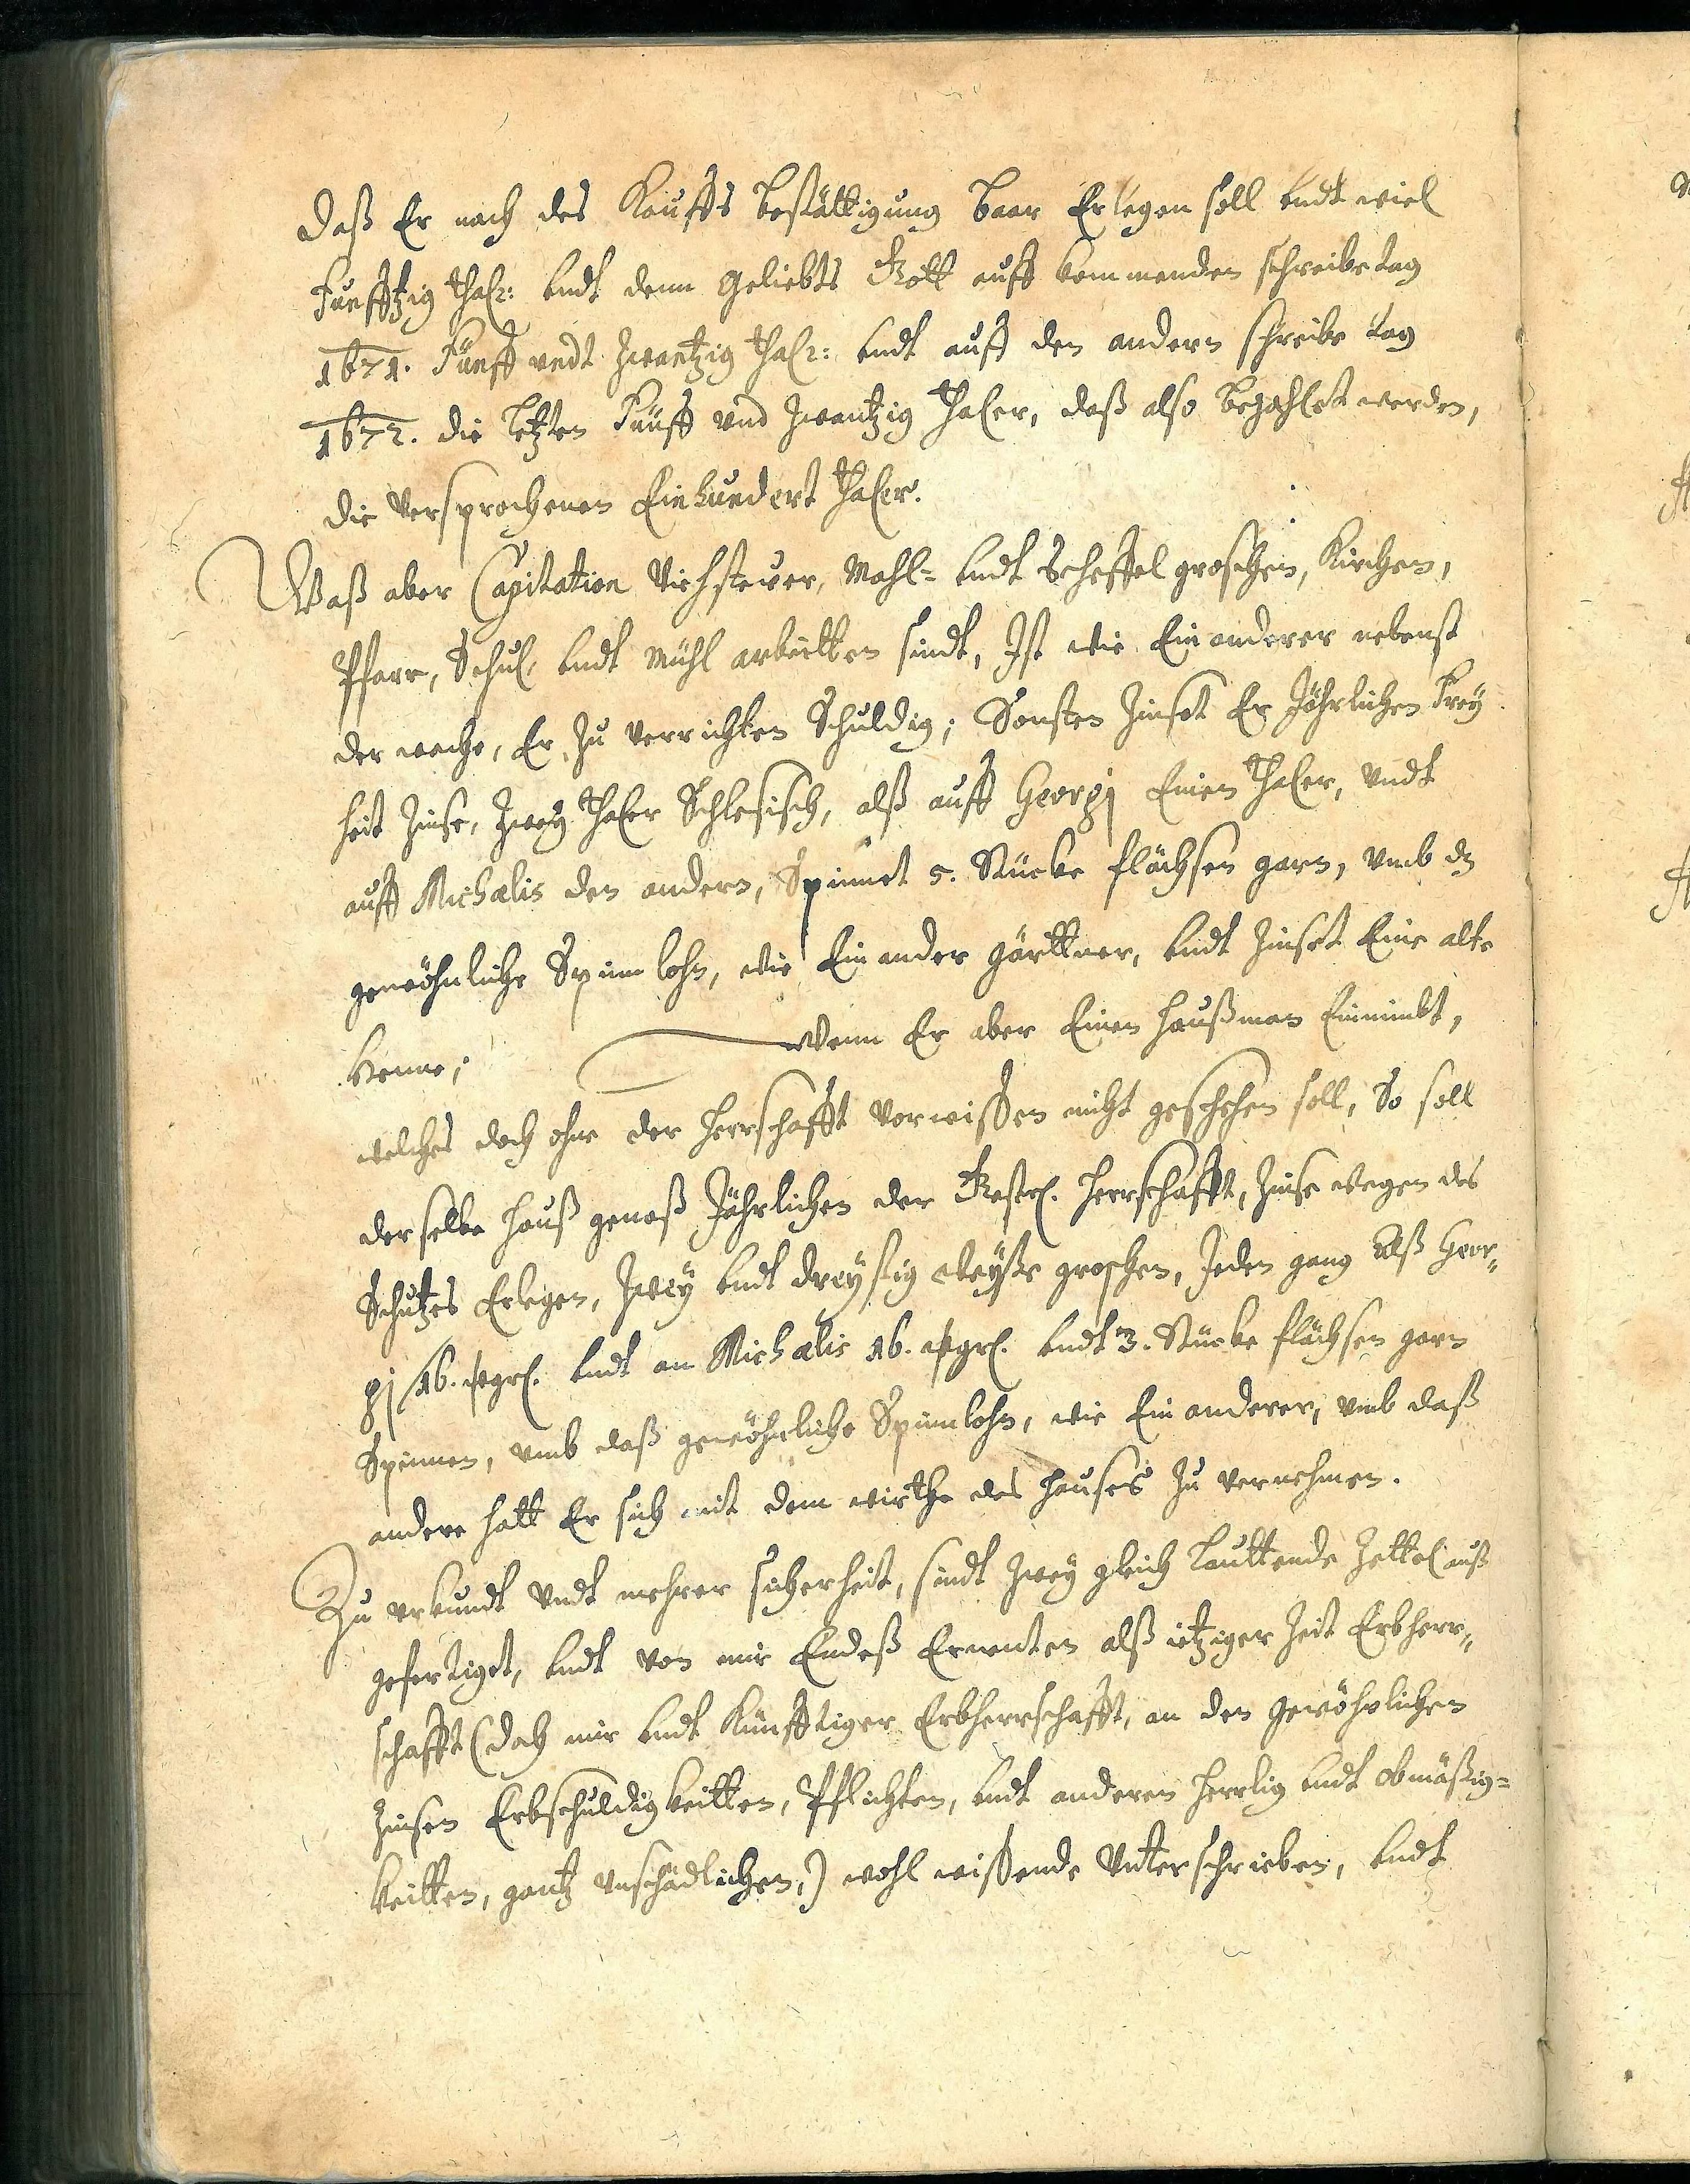 daß Er nach des Kauffs bestättigung baar Erlegen soll undt will
Funfftzig Thlr: undt denn geliebts Gott auff kommenden schreibe tag
1671. Fünff undt zwantzig Thlr: undt auff den andern schreibe tag
1672. die letzten Fünff und zwantzig Thaler, daß also bezahlet werden,
die versprochenen Einhundert Thaler.
Waß aber Capitation Viehsteuer, Mahl- undt Scheffel groschen, Kirchen,
Pfarr, Schul undt Mühl arbeitten sindt, Ist wie Ein anderer nebenst
der wache, Er zu verrichten Schuldig; Sonsten Zinset Er Jährlichen Frey
heit Zinse, Zwey Thaler Schlesisch, alß auff Georgj Einen Thaler, undt
auff Michaelis den andern, Spinnet 5. Stücke flächsen garn, umb dz
gewöhnliche Spinn lohn, wie Ein ander gärttner, undt Zinset Eine alte
henne; Wenn Er aber Einen haußman Einnimbt,
welches doch ohne der herrschafft vorwissen nicht geschehen soll, So soll
derselbe hauß genoß Jährlichen der Gestr. herrschafft, Zinse wegen des
Schutzes Erlegen, Zwey undt dreyssig weysse groschen, Jeden gang Alß Geor-
gj 16. wgrl. undt an Michaelis 16. wgrl. undt 3. Stücke flächsen garn
Spinnen, umb daß gewöhnliche Spinlohn, wie Ein anderer, umb daß
andere hatt Er sich mit dem wirthe des hauses zu vernehmen.
Zu uhrkundt undt mehrer sicherheit, sindt Zwey gleich lauttende Zettel auß
gefertiget, undt von mir Endeß Ernenten alß ietziger Zeit Erbherr-
schafft (doch mir undt Künfftiger Erbherrschafft, an den gewöhnlichen
Zinsen Erbschuldigkeitten, Pflichten, undt anderen herrlig undt obmässig-
keitten, gantz unschädlichen,) wohl wissende Unterschrieben, undt